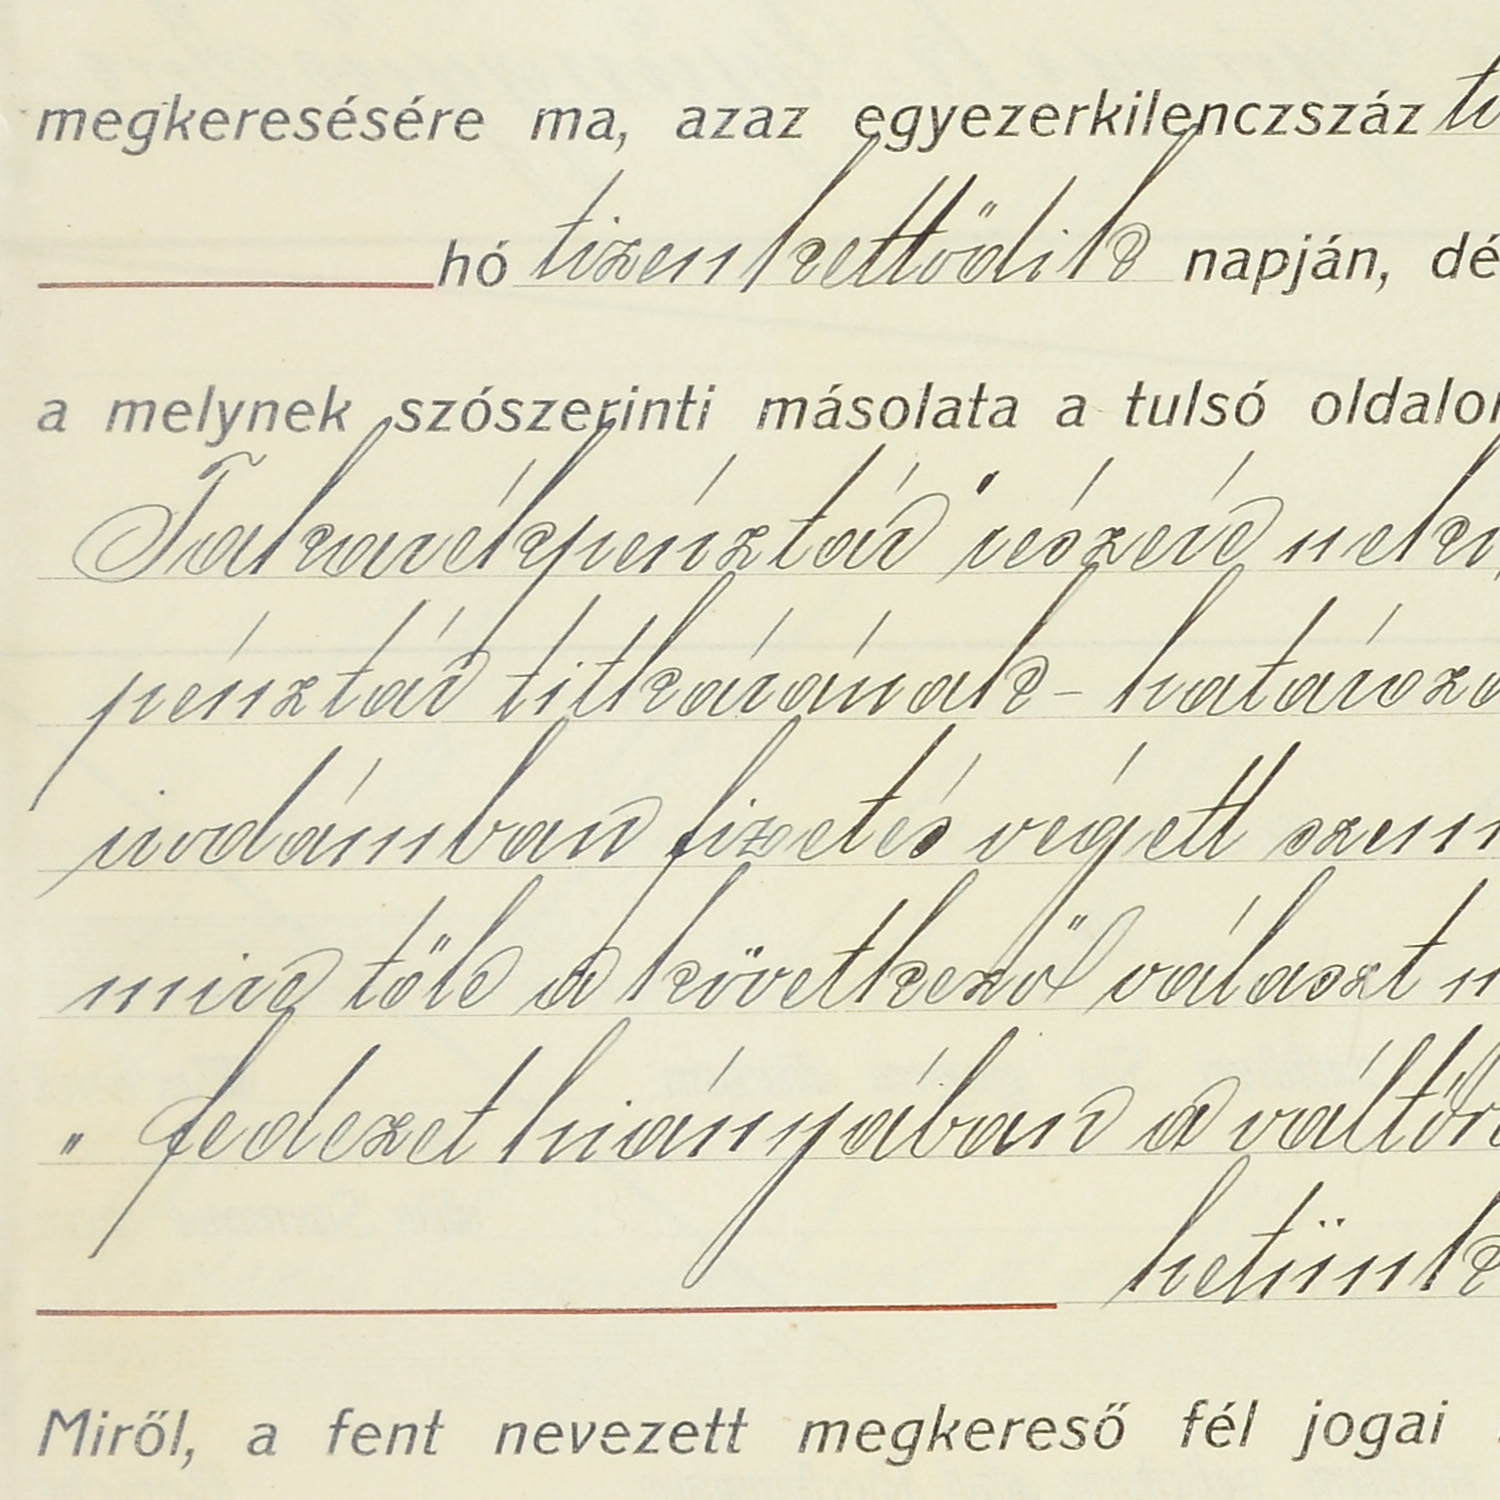 megkeresésére ma, azaz egyezerkilenczszáz
hó tizenkettődik napján, dé
a melynek szószerinti másolata a tulsó oldalon
Takarékpénztár" részére nek
pénztár titkárának - határoza
irodámban fizetés végett szem
mire tőle a következő választ n
" fedezet hiányában a váltót
hetünk
Miről, a fent nevezett megkereső fél jogai